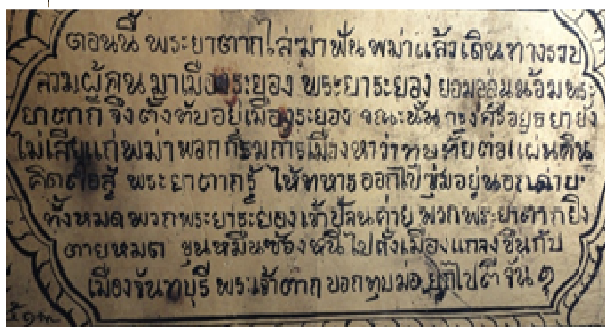 ตอนนี้ พระยาตากไล่ฆ่าฟันพม่าแล้วเดินทางรวบ
รวมผู้คนมาเมืองระยอง พระยาระยอง ยอมอ่อนน้อมพระ
ยาตาก จึงตั้งทัพอยู่เมืองระยอง ขณะนั้น กรุงศรีอยุธยายัง
ไม่เสียแก่พม่า พวกกรมการเมืองหาว่า ตอแผ่นดิน
คิดต่อสู้ พระยาตากรู้ ให้ทหารออกไปซุ่มอยู่นอกค่าย
ทั้งหมด พวกพระยาระยองเข้าปล้นค่าย พวกพระยาตากยิง
ตายหมด ขุนหมื่นซ่องหนีไปตั้งเมืองแกลงขึ้นกับ
เมืองจันทบุรี พระเจ้าตาก บอกทุบม่อ ยกไปตี จัน ๆ